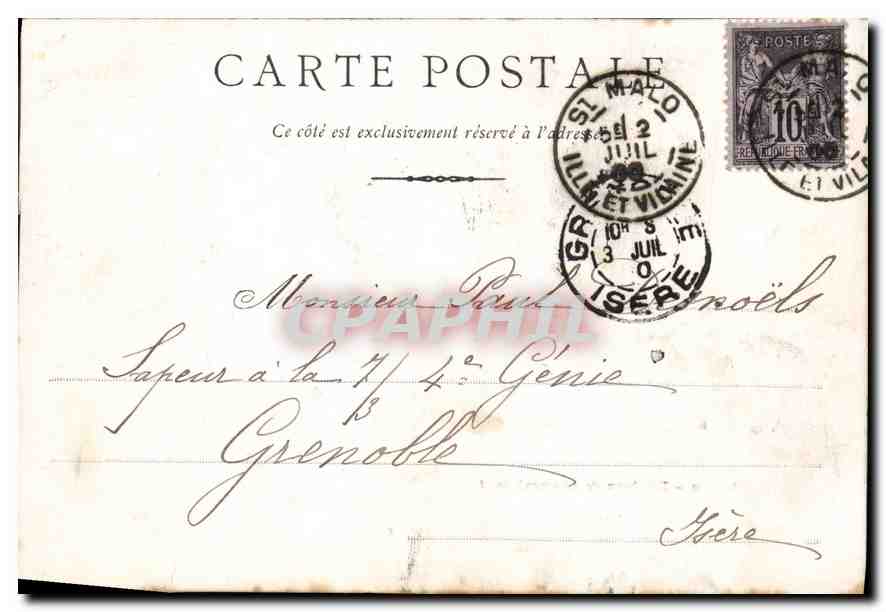 CARTE POSTALE
Ce côté est exclusivement réservé à l'adresse
POSTE
10
REPUBLIQUE FRAN
ST MALO
5E 2
JUIL
00
ILLE ET VILAINE
MA
ET VIL
GR E
10H S
3 JUIL
0
ISERE
Monsieur Paul noëls
CPAPHIL
Sapeur à la 7/3 4e Génie
Grenoble
Isère